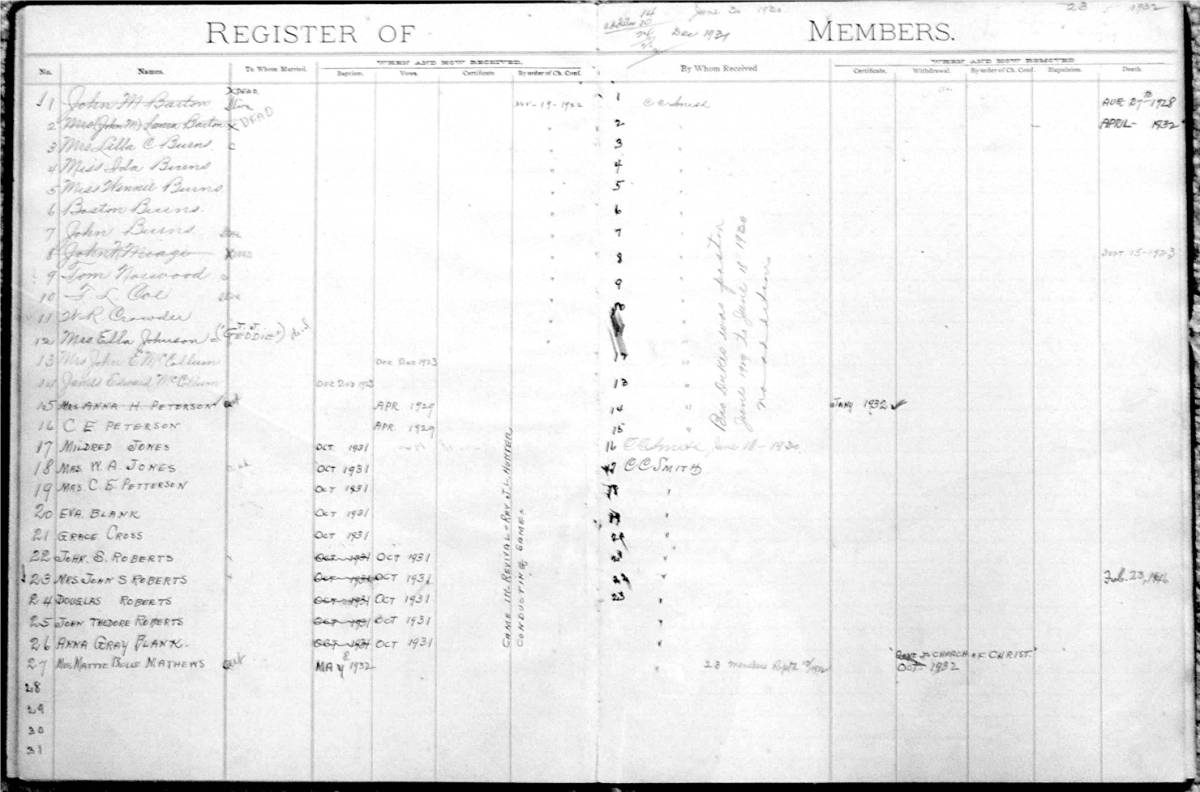 14 June 30 1920 23 1932
Dec 1931
REGISTER OF MEMBERS.
WHEN AND HOW RECEIVED. WHEN AND HOW REMOVED
No. Names. To Whom Married. Baptism. Vows. Certificate By order of Ch. Conf. By Whom Received Certificate. Withdrawal. By order of Ch. Conf. Expulsion. Death.
1 John M Barton X DEAD 19-1922 1 C C Smith AUG 27th 1928
2 Mrs (John M) Barton X DEAD " 2 " APRIL - 1932
3 Mrs Lilla C Burns " 3 "
4 Miss Ida Burns " 4 "
5 Miss Winnie Burns " 5 "
6 Boston Burns " 6 "
7 John Burns " 7 "
8 John X DEAD " 8 " 15-1923
9 Tom Norwood " 9 "
10 F L Coe " "
11 W.R. Crowder " "
12 Mrs Ella Johnson (T.J. "GEDDIE") " "
13 Mrs John E McCollum DEC 1923 "
14 James Edward McCollum DEC 1923 13 "
15 MRS ANNA H. PETERSON out APR 1929 14 " JANY 1932 ✓
16 C E PETERSON APR 1929 15 "
Rev Dukes was pastor
June 1929 to June 18 1930
no additions
17 MILDRED JONES OCT 1931 16 C C Smith, June 18 - 1930
18 MRS. W. A. JONES OCT 1931 C C SMITH
19 MRS. C E PETTERSON OCT 1931 "
20 EVA BLANK OCT 1931 "
21 GRACE CROSS OCT 1931 "
22 JOHN S. ROBERTS OCT 1931 OCT 1931 "
23 MRS. JOHN S ROBERTS OCT 1931 OCT 1931 22 " Feb. 23, 1946
24 DOUGLAS ROBERTS OCT 1931 OCT 1931 23 "
25 JOHN THEDORE ROBERTS OCT 1931 OCT 1931 "
26 ANNA GRAY BLANK OCT 1931 OCT 1931 "
CAME IN REVIVAL - REV. J. L. HUNTER
CONDUCTING SAME.
27 MRS MATTIE BELLE MATHEWS out MAY 8 1932 " 23 members Sept 1932 "GONE TO CHURCH OF CHRIST."
OCT- 1932
28
29
30
31